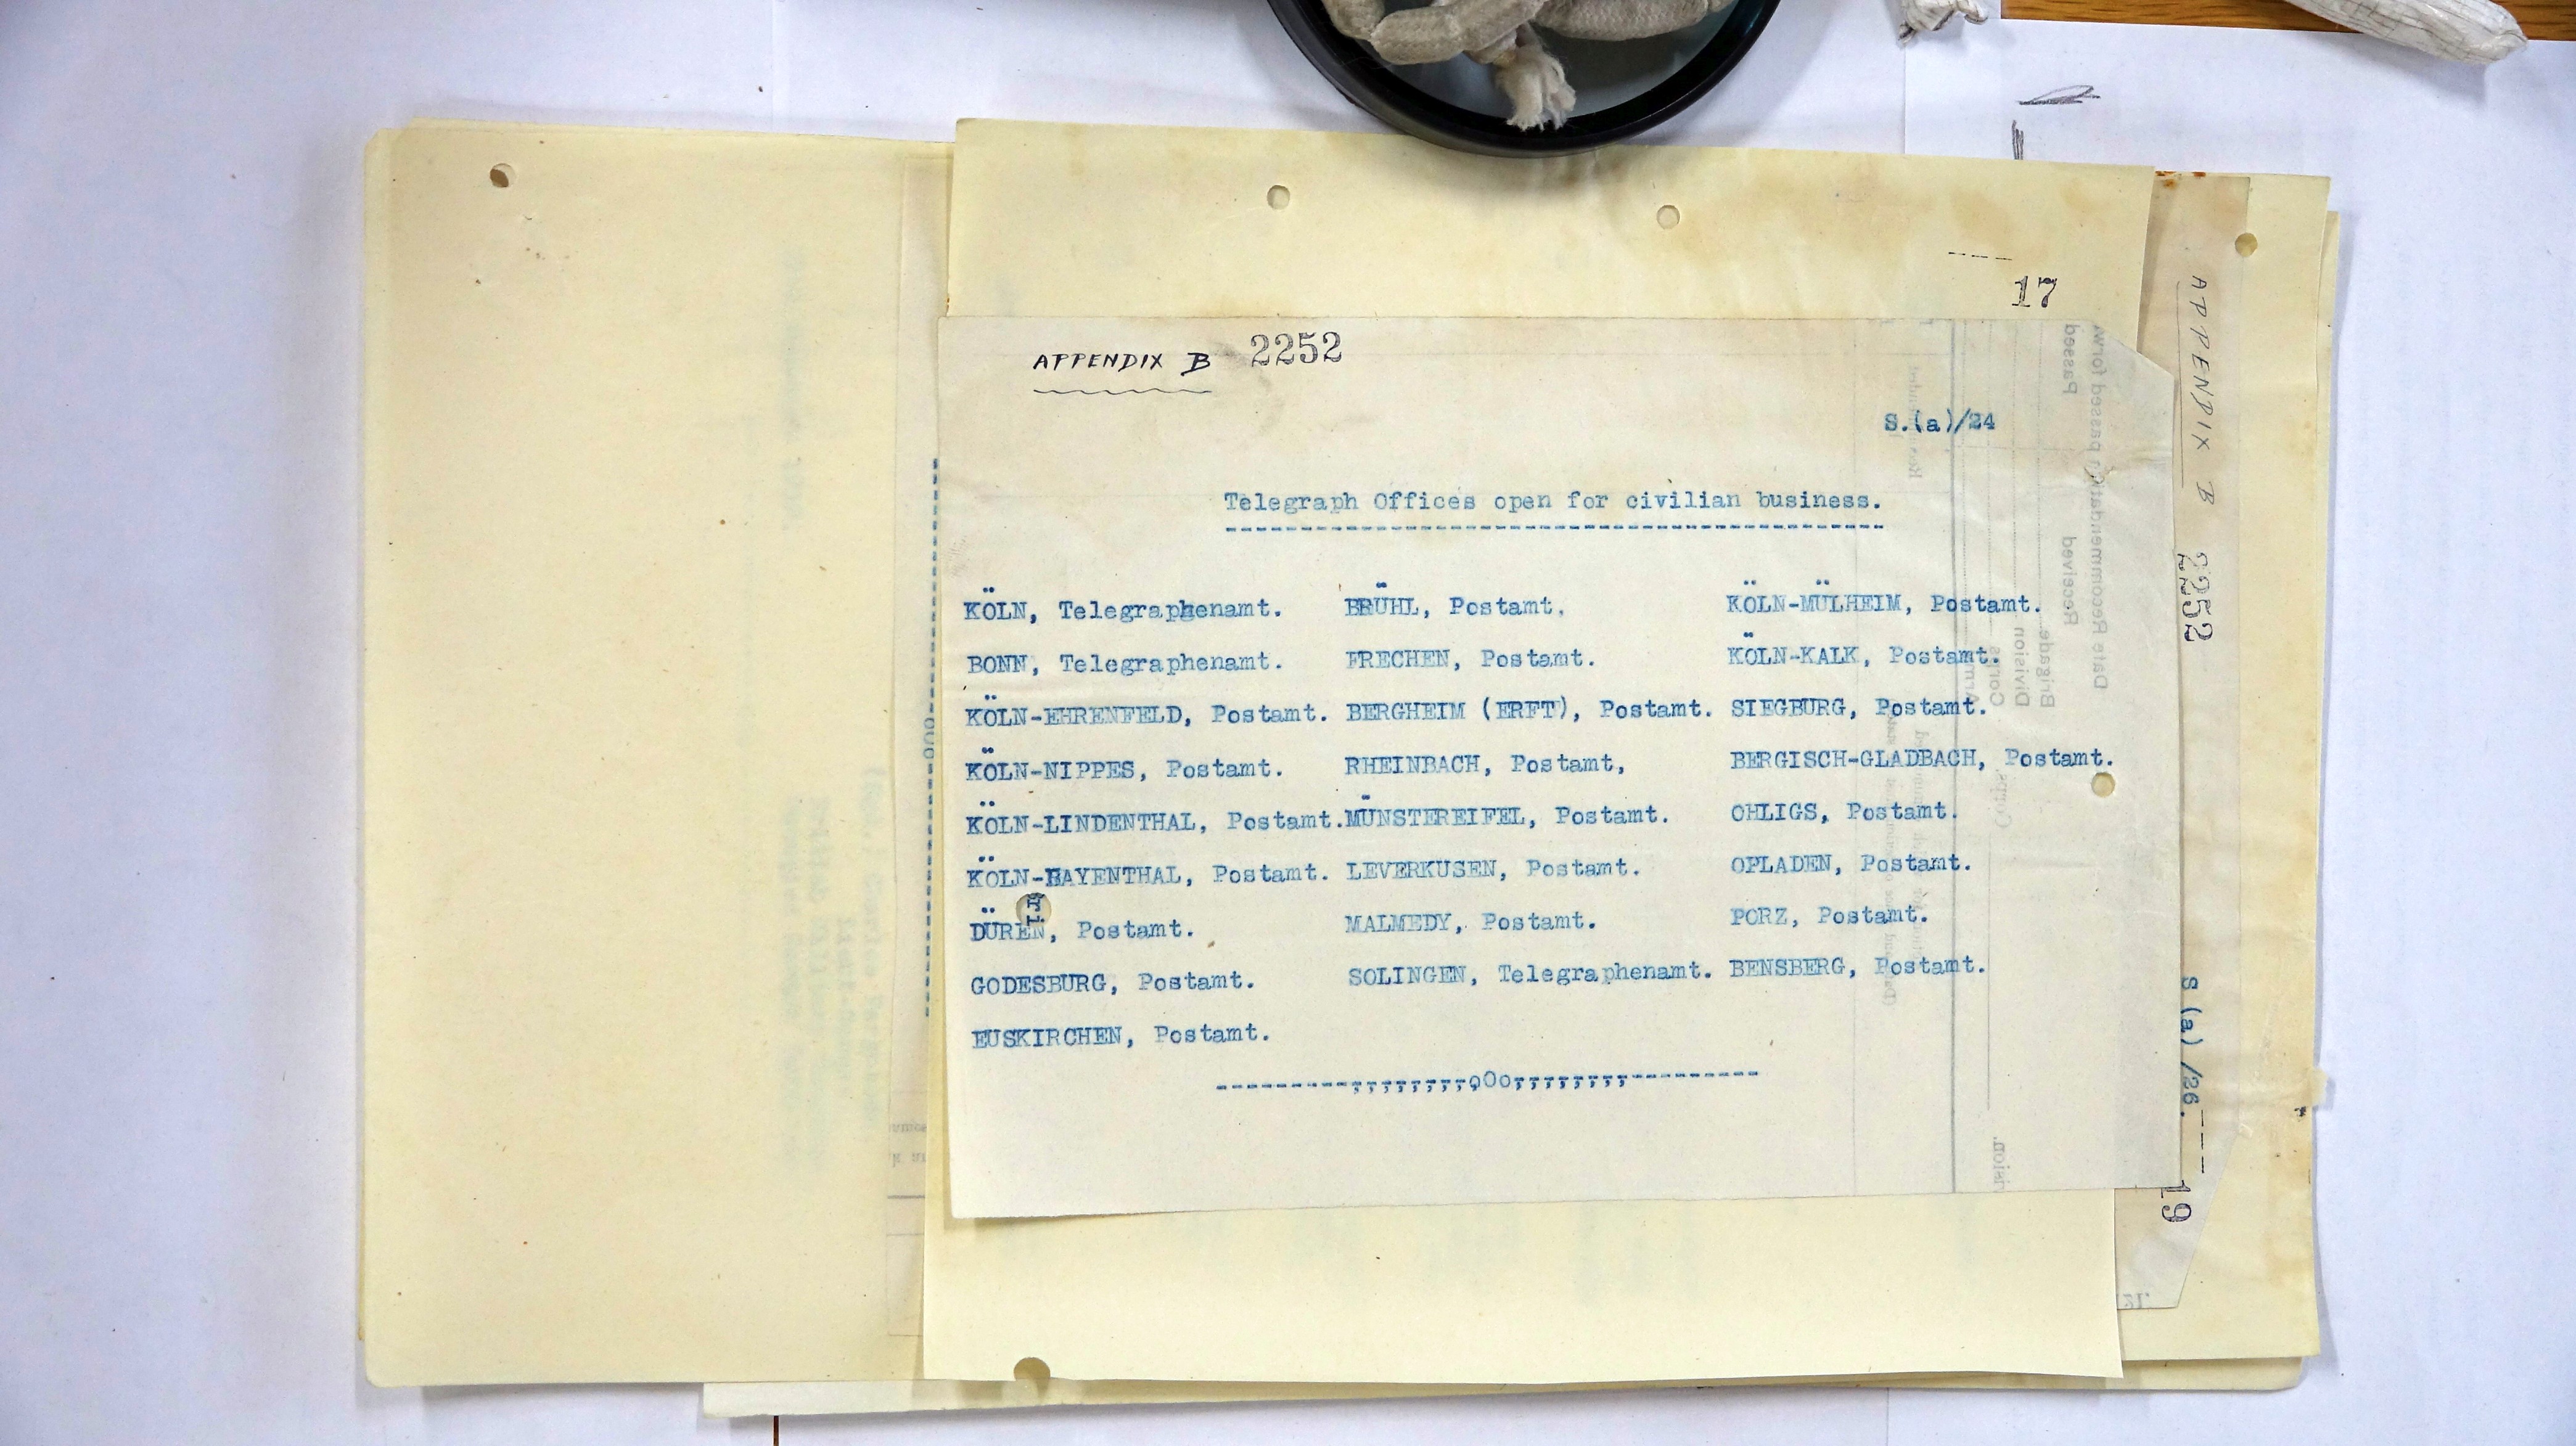 17
APPENDIX B 2252
S.(a)/24
Telegraph Offices open for civilian business.
KÖLN, Telegraphenamt. BRÜHL, Postamt. KÖLN-MÜLHEIM, Postamt.
BONN, Telegraphenamt. FRECHEN, Postamt. KÖLN-KALK, Postamt.
KÖLN-EHRENFELD, Postamt. BERGHEIM (ERFT), Postamt. SIEGBURG, Postamt.
KÖLN-NIPPES, Postamt. RHEINBACH, Postamt, BERGISCH-GLADBACH, Postamt.
KÖLN-LINDENTHAL, Postamt. MÜNSTEREIFEL, Postamt. OHLIGS, Postamt.
KÖLN-BAYENTHAL, Postamt. LEVERKUSEN, Postamt. OPLADEN, Postamt.
DÜREN, Postamt. MALMEDY, Postamt. PORZ, Postamt.
GODESBURG, Postamt. SOLINGEN, Telegraphenamt. BENSBERG, Postamt.
EUSKIRCHEN, Postamt.
----------,,,,,,,,,oOo,,,,,,,,,----------
ri
APPENDIX B 2252
S (a) /26.
19
Passed
Date Recommendation passed forward
Received
Brigade
Division
Corps
Army